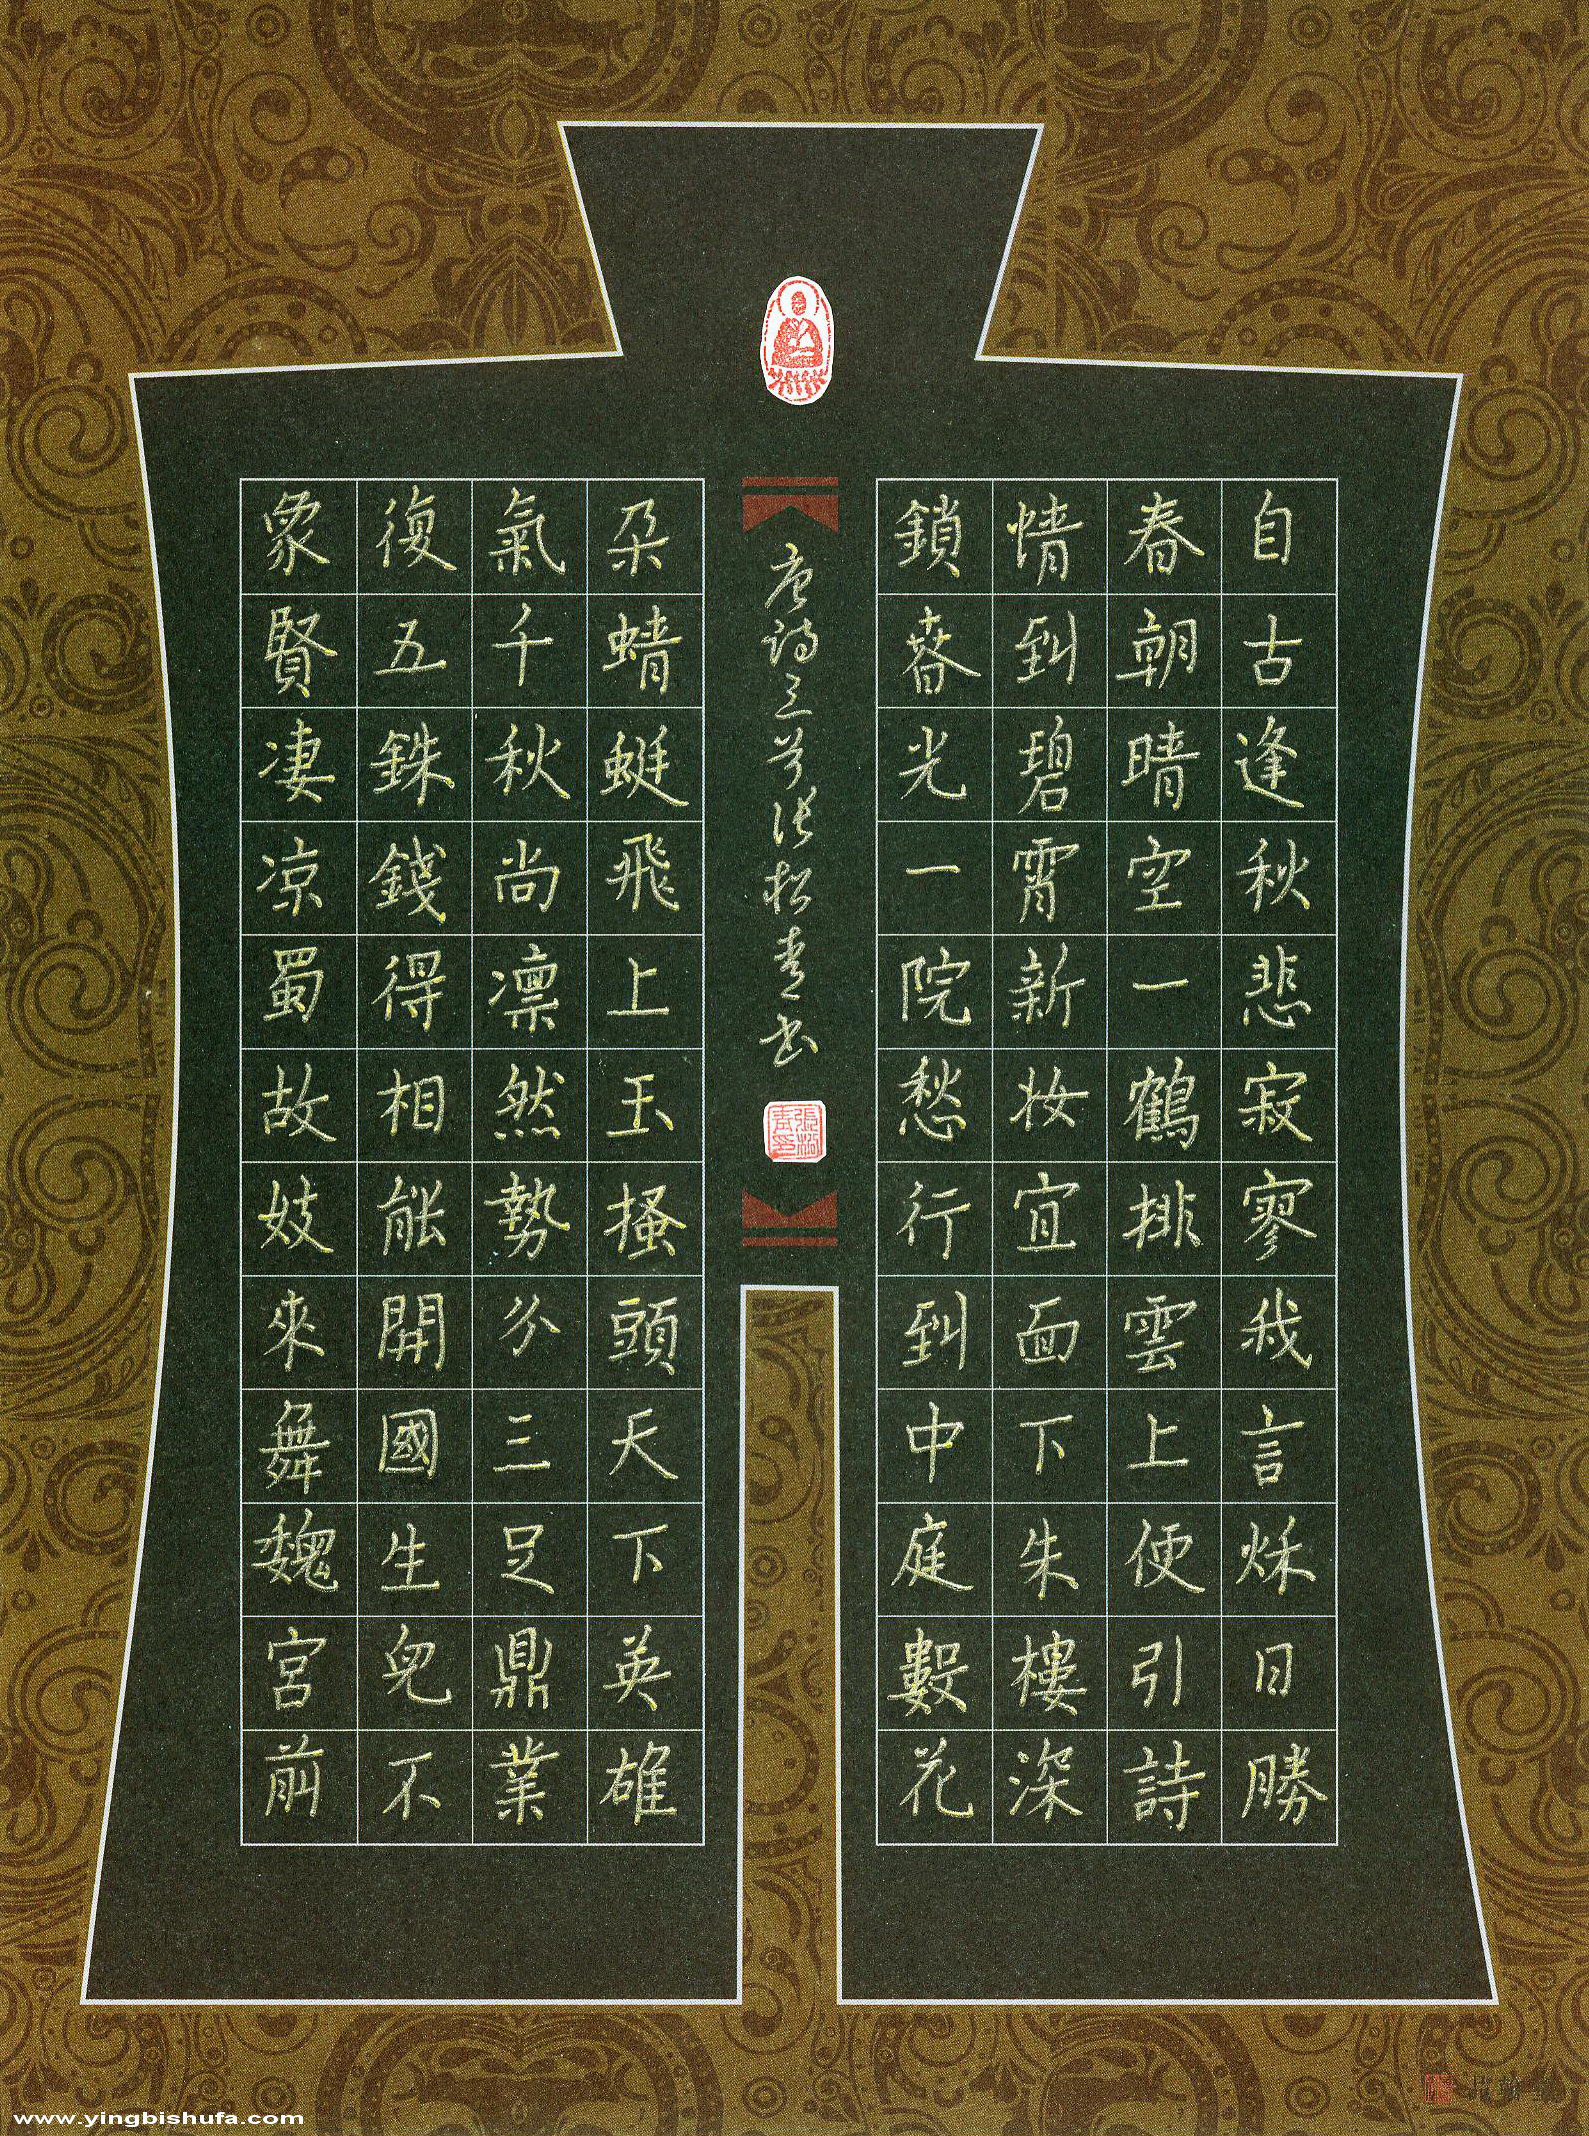 自古逢秋悲寂寥我言秌日勝
春朝晴空一鶴排雲上便引詩
情到碧霄新妝宜面下朱樓深
鎖春光一院愁行到中庭數花
朵蜻蜓飛上玉搔頭天下英雄
氣千秋尚凛然勢分三足鼎業
復五銖錢得相能開國生兒不
象賢凄凉蜀故妓來舞魏宮前
唐詩三首張松青書
www.yingbishufa.com